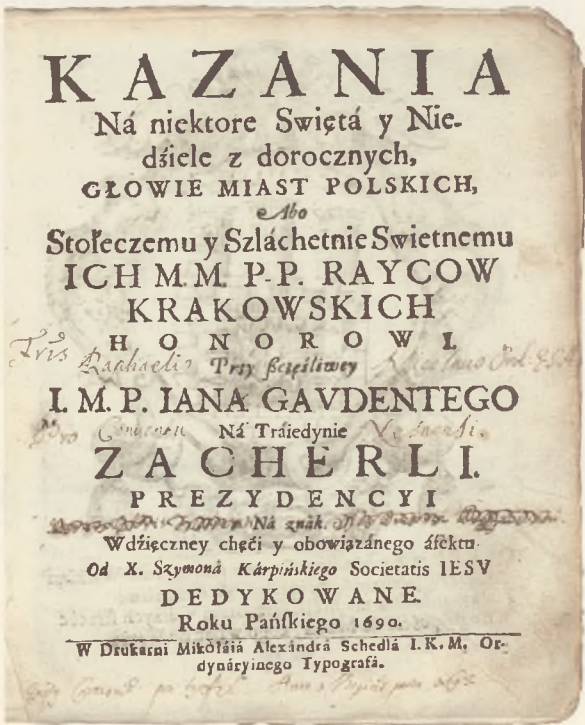 KAZANIA
Ná niektore Swiętá y Nie-
dźiele z dorocznych,
GŁOWIE MIAST POLSKICH,
Abo
Stołeczemu y Szláchetnie Swietnemu
ICH M.M. P.P. RAYCOW
KRAKOWSKICH
HONOROWI.
Przy ßczęśliwey
I. M. P. IANA GAVDENTEGO
Ná Tráiedynie
ZACHERLI.
PREZYDENCYI
Ná znák.
Wdźięczney chęći y obowiązánego áfektu.
Od X. Szymoná Kárpińskiego Societatis IESV
DEDYKOWANE.
Roku Páńſkiego 1690.
W Drukarni Mikołáiá Alexándrá Schedlá I. K. M. Or-
dynáryinego Typográfá.